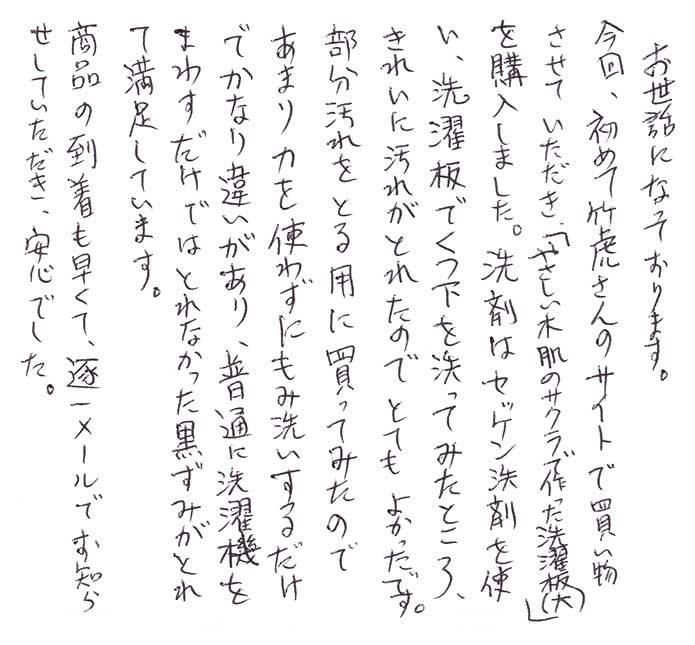 お世話になっております。
今回、初めて竹虎さんのサイトで買い物
させていただき、「やさしい木肌のサクラで作った洗濯板(大)」
を購入しました。洗剤はセッケン洗剤を使
い、洗濯板でくつ下を洗ってみたところ、
きれいに汚れがとれたのでとてもよかったです。
部分汚れをとる用に買ってみたので
あまり力を使わずにもみ洗いするだけ
でかなり違いがあり、普通に洗濯機を
まわすだけではとれなかった黒ずみがとれ
て満足しています。
商品の到着も早くて、逐一メールでお知ら
せしていただき、安心でした。